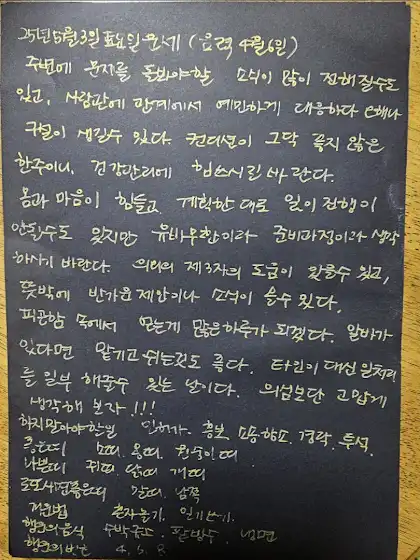 25년 5월 3일 토요일 운세 (음력 4월 6일)
주변에 문제를 돌봐야할 소식이 많이 전해질수도
있고, 사람관에 관계에서 예민하게 대응하다
커질이 생길수 있다. 컨디션이 그닥 좋지 않은
한주이니, 건강관리에 힘쓰시길 바란다.
몸과 마음이 힘들고 계획한 대로 일이 진행이
안될수도 있지만 유비무환이라 준비과정이라 생각
하시기 바란다. 의외의 제3자의 도움이 있을수 있고,
뜻밖에 반가운 제안이나 소식이 올수 있다.
피곤함 속에서 얻는게 많은 하루가 되겠다. 알바가
있다면 맡기고 쉬는것도 좋다. 타인이 대신 일처리
를 일부 해줄수 있는 날이다. 의심보단 고맙게
생각해 보자!!!
하지말아야할일 인허가. 홍보. 소송항소. 경락. 투석.
좋은띠 소띠. 용띠. 원숭이띠
나쁜띠 쥐띠. 닭띠. 개띠
로또사면좋은띠 남쪽
혼자놀기. 일기쓰기.
행운의음식 수박쥬스. 팥빙수. 냉면
행운의번호 4. 6. 8